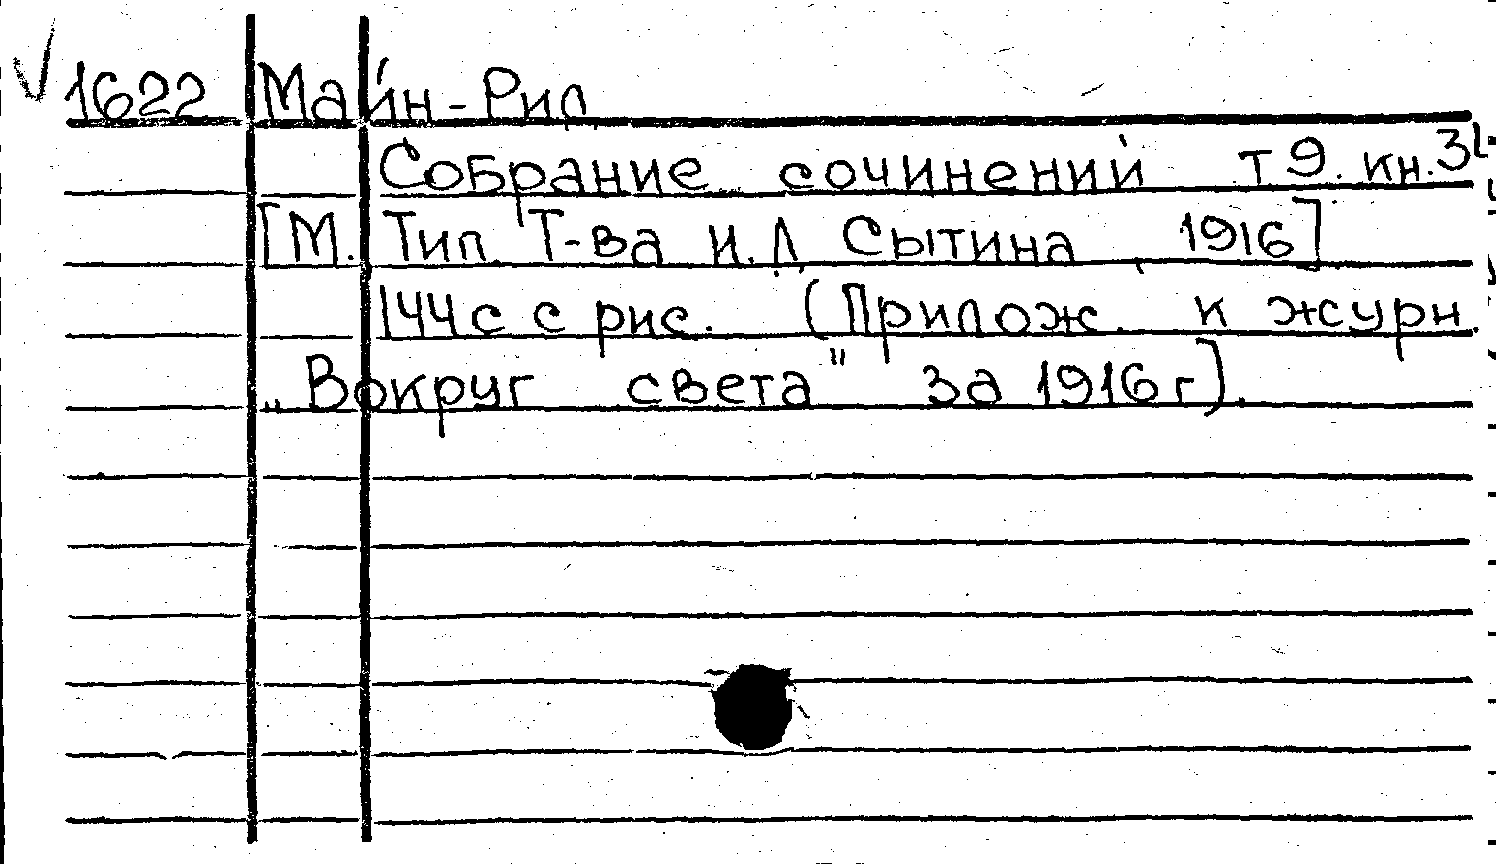 √ 1622 Майн-Рид
Собрание сочинений т 9. кн.
[М. Тип. Т-ва И. Д. Сытина 1916]
144 с с рис. (Прилож. к журн.
„Вокруг света" за 1916 г).